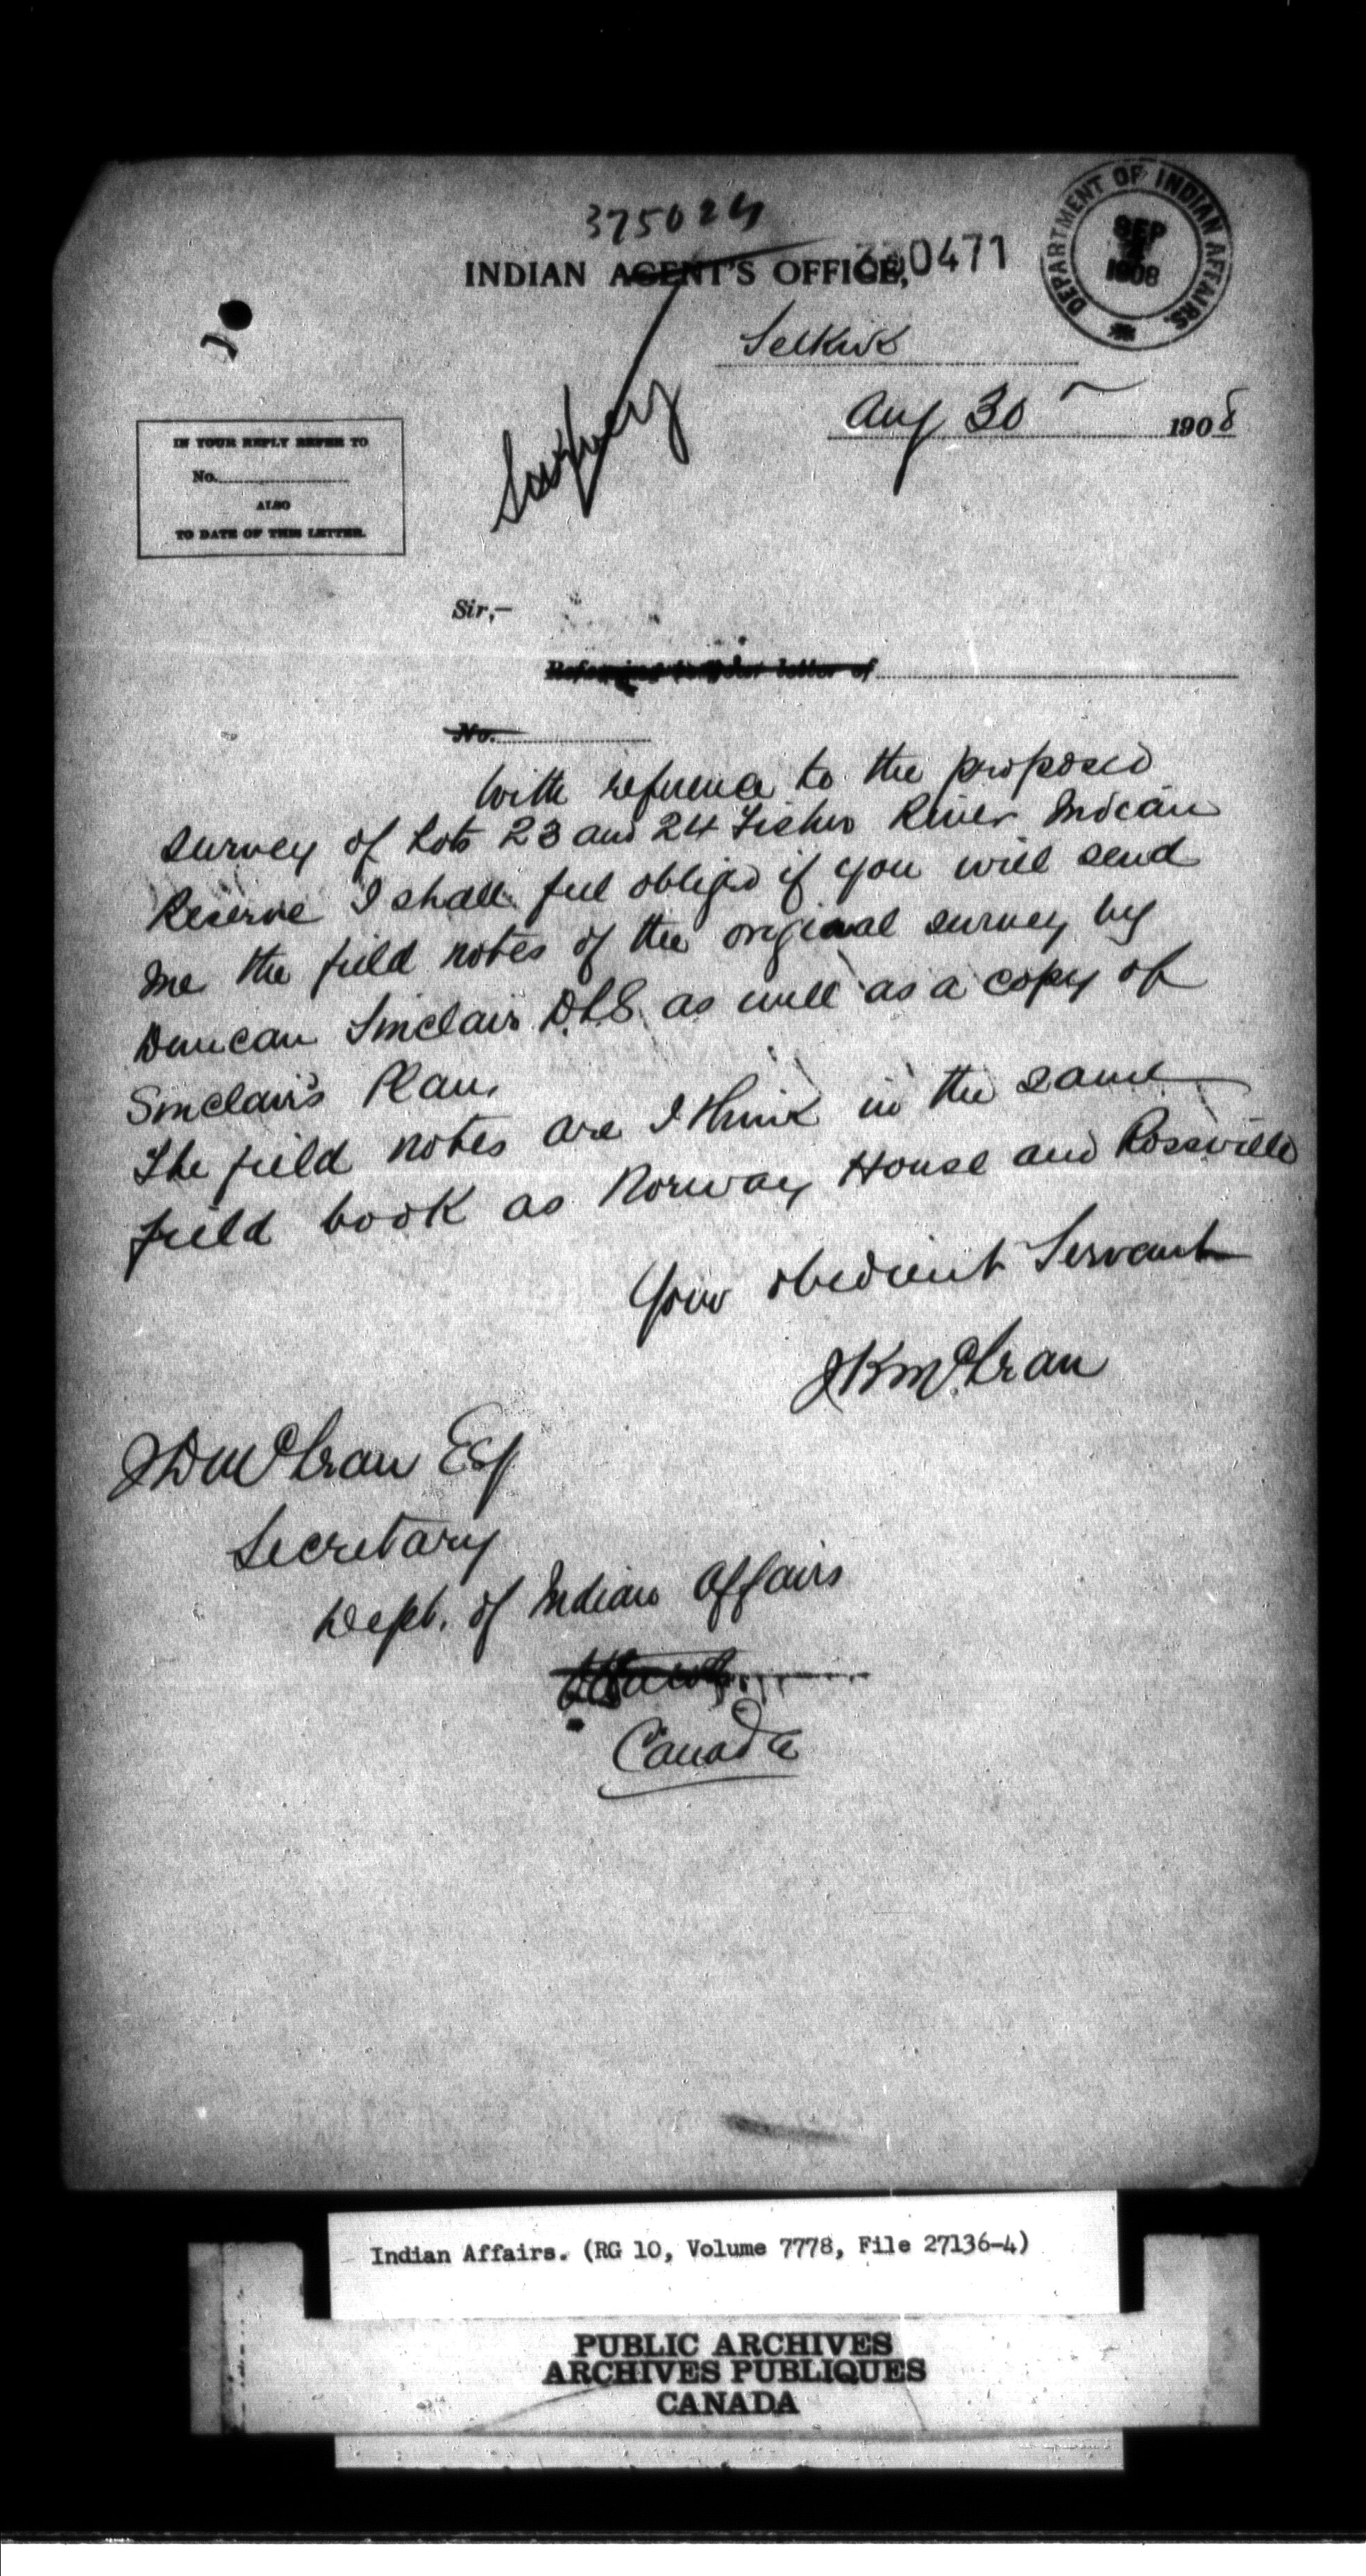 375024
INDIAN AGENT'S OFFICE,
0471
DEPARTMENT OF INDIAN AFFAIRS.
SEP
1908
Selkirk
Aug 30 1908
Survey
IN YOUR REPLY REFER TO
No.
ALSO
TO DATE OF THIS LETTER.
Sir,-
Referring to your letter of
No.
With reference to the proposed
survey of Lots 23 and 24 Fisher River Indian
Reserve I shall feel obliged if you will send
me the field notes of the original survey by
Duncan Sinclair D.L.S. as well as a copy of
Sinclair's Plan.
The field notes are I think in the same
field book as Norway House and Rossville
Your obedient Servant
J K McLean
J D McLean Esq
Secretary
Dept. of Indian Affairs
Ottawa
Canada
Indian Affairs. (RG 10, Volume 7778, File 27136-4)
PUBLIC ARCHIVES
ARCHIVES PUBLIQUES
CANADA